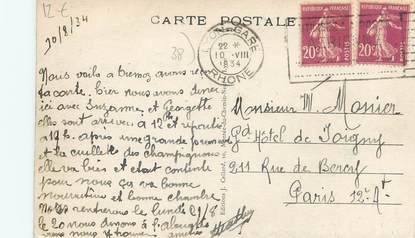 12.€
30/8/34
38
CARTE POSTALE
LYON-GARE
22 *
10 - VIII
1934
RHONE
RÉPUBLIQUE FRANÇAISE
20c POSTES
RÉPUBLIQUE FRANÇAISE
20c POSTES
Nous voila a avons recu
ta carte. hier nous avons diner
ici avec Suzanne, et Georgette
elles sont arrivées à 12h et reparties
a 18h. après une grande
et la cuillette des champignons
elle va bien et etait contente
pour nous ça va bonne
nourriture et bonne chambre
rentrerons le lundi 21/8
le 20 nous dinons à
vous nous
Monsieur W. Monier
Gd Hôtel de Joigny
211 Rue de Bercy
Paris 12e At